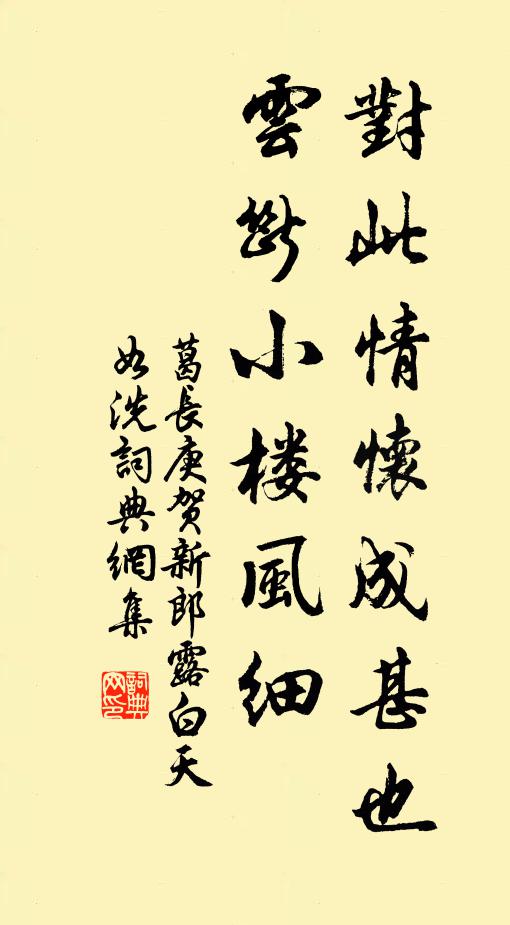 對此情懷成甚也
雲斷小楼風細
葛長庚贺新郎露白天
如洗詞典網集
詞典
网印